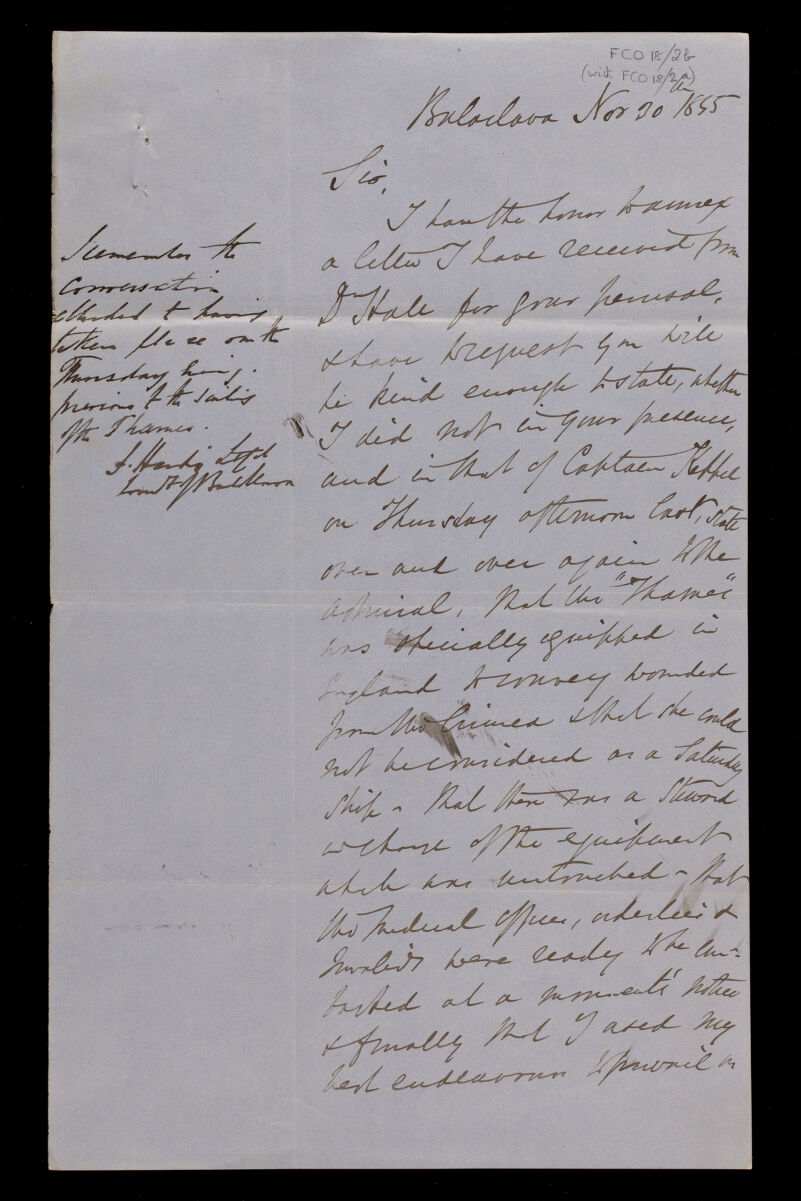 FCO 18/2b
(with FCO 18/2a)
Balaclava Nov 30th 1855
Sir,
I have the honor to annex
a letter I have received from
Dr Hall for your perusal,
& have to request you will
be kind enough to state, whether
I did not in your presence,
and in that of Captain Keppel
on Thursday afternoon last, state
over and over again to the
Admiral, that the "Thames"
was specially equipped in
England to convey wounded
from the Crimea & that she could
not be considered as a
Ship - that there was a Steward
in charge of the equipment
which was untouched - that
the Medical Officer, orderlies &
Invalids were ready to be em-
barked at a moment's notice
& finally that I used my
best endeavours to prevail on
I remember the
conversation
alluded to having
taken place on the
Thursday
previous to the sailing
of the Thames.
Comdt of Balaklava